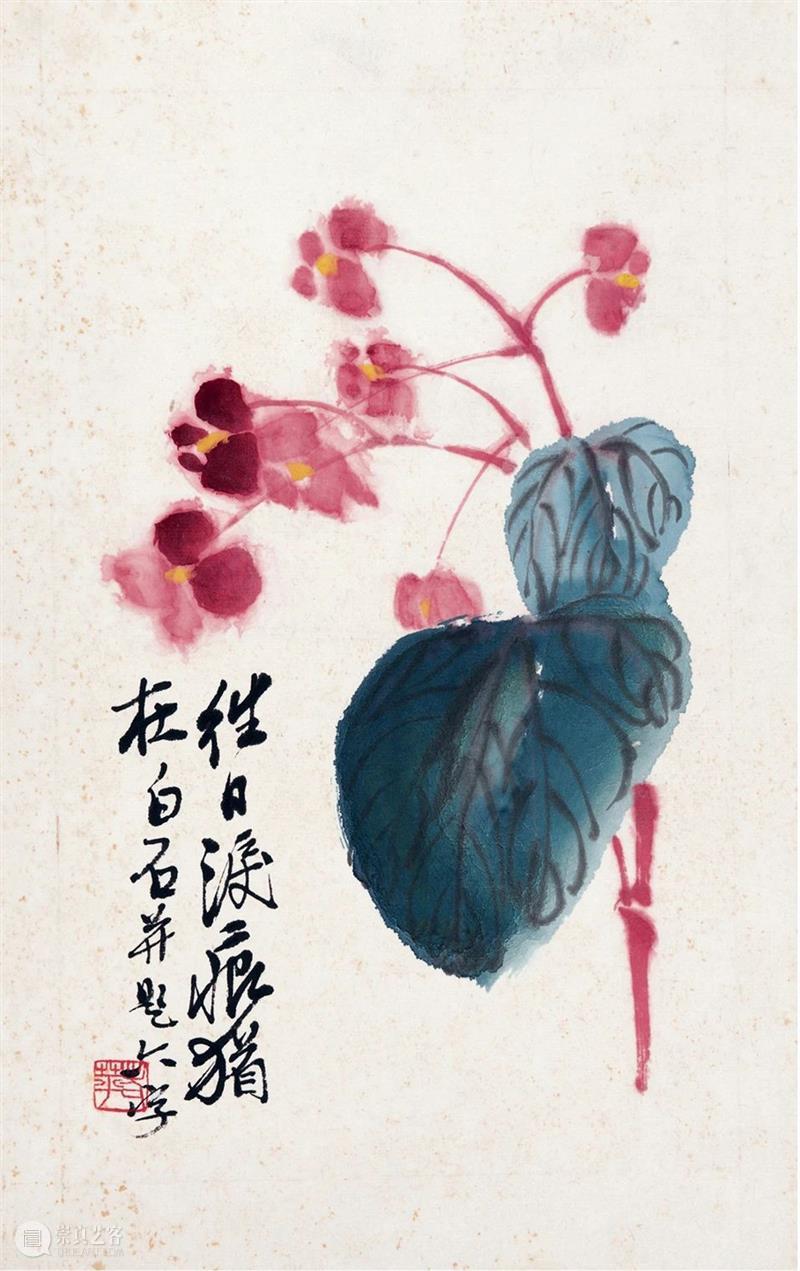 往日淚痕猶
在白石并題六字
崇真艺客
TRUEART.COM